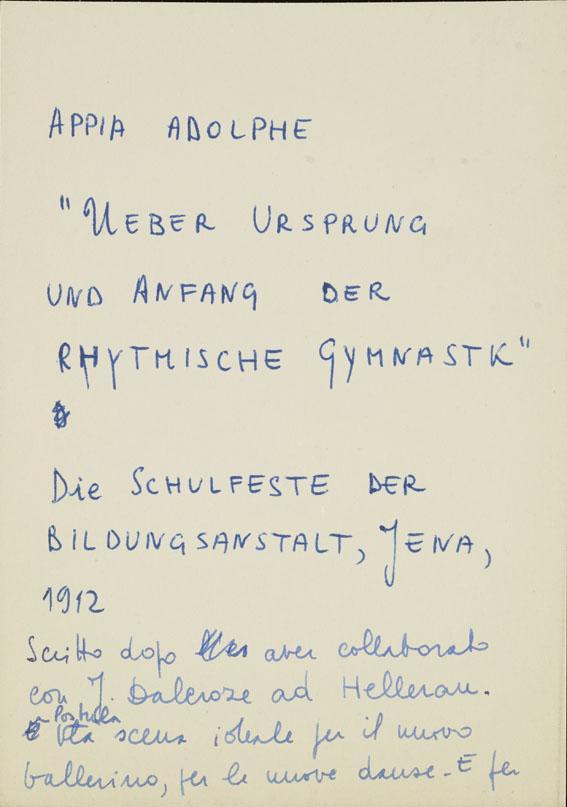 APPIA ADOLPHE
"UEBER URSPRUNG
UND ANFANG DER
RHYTMISCHE GYMNASTK"
Die SCHULFESTE DER
BILDUNGSANSTALT, JENA,
1912
Scritto dopo aver collaborato
con J. Dalcroze ad Hellerau.
Postula
una scena ideale per il nuovo
ballerino, per le nuove danse. E per